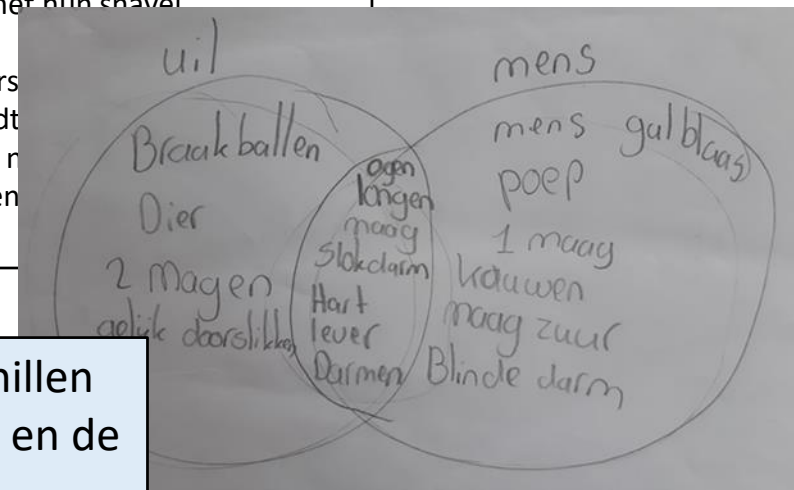 met hun snavel
uil
mens
Braakballen
Dier
2 Magen
gelijk doorslikken
ogen
longen
maag
Slokdarm
Hart
lever
Darmen
mens galblaas
poep
1 maag
kauwen
maag zuur
Blinde darm
en de